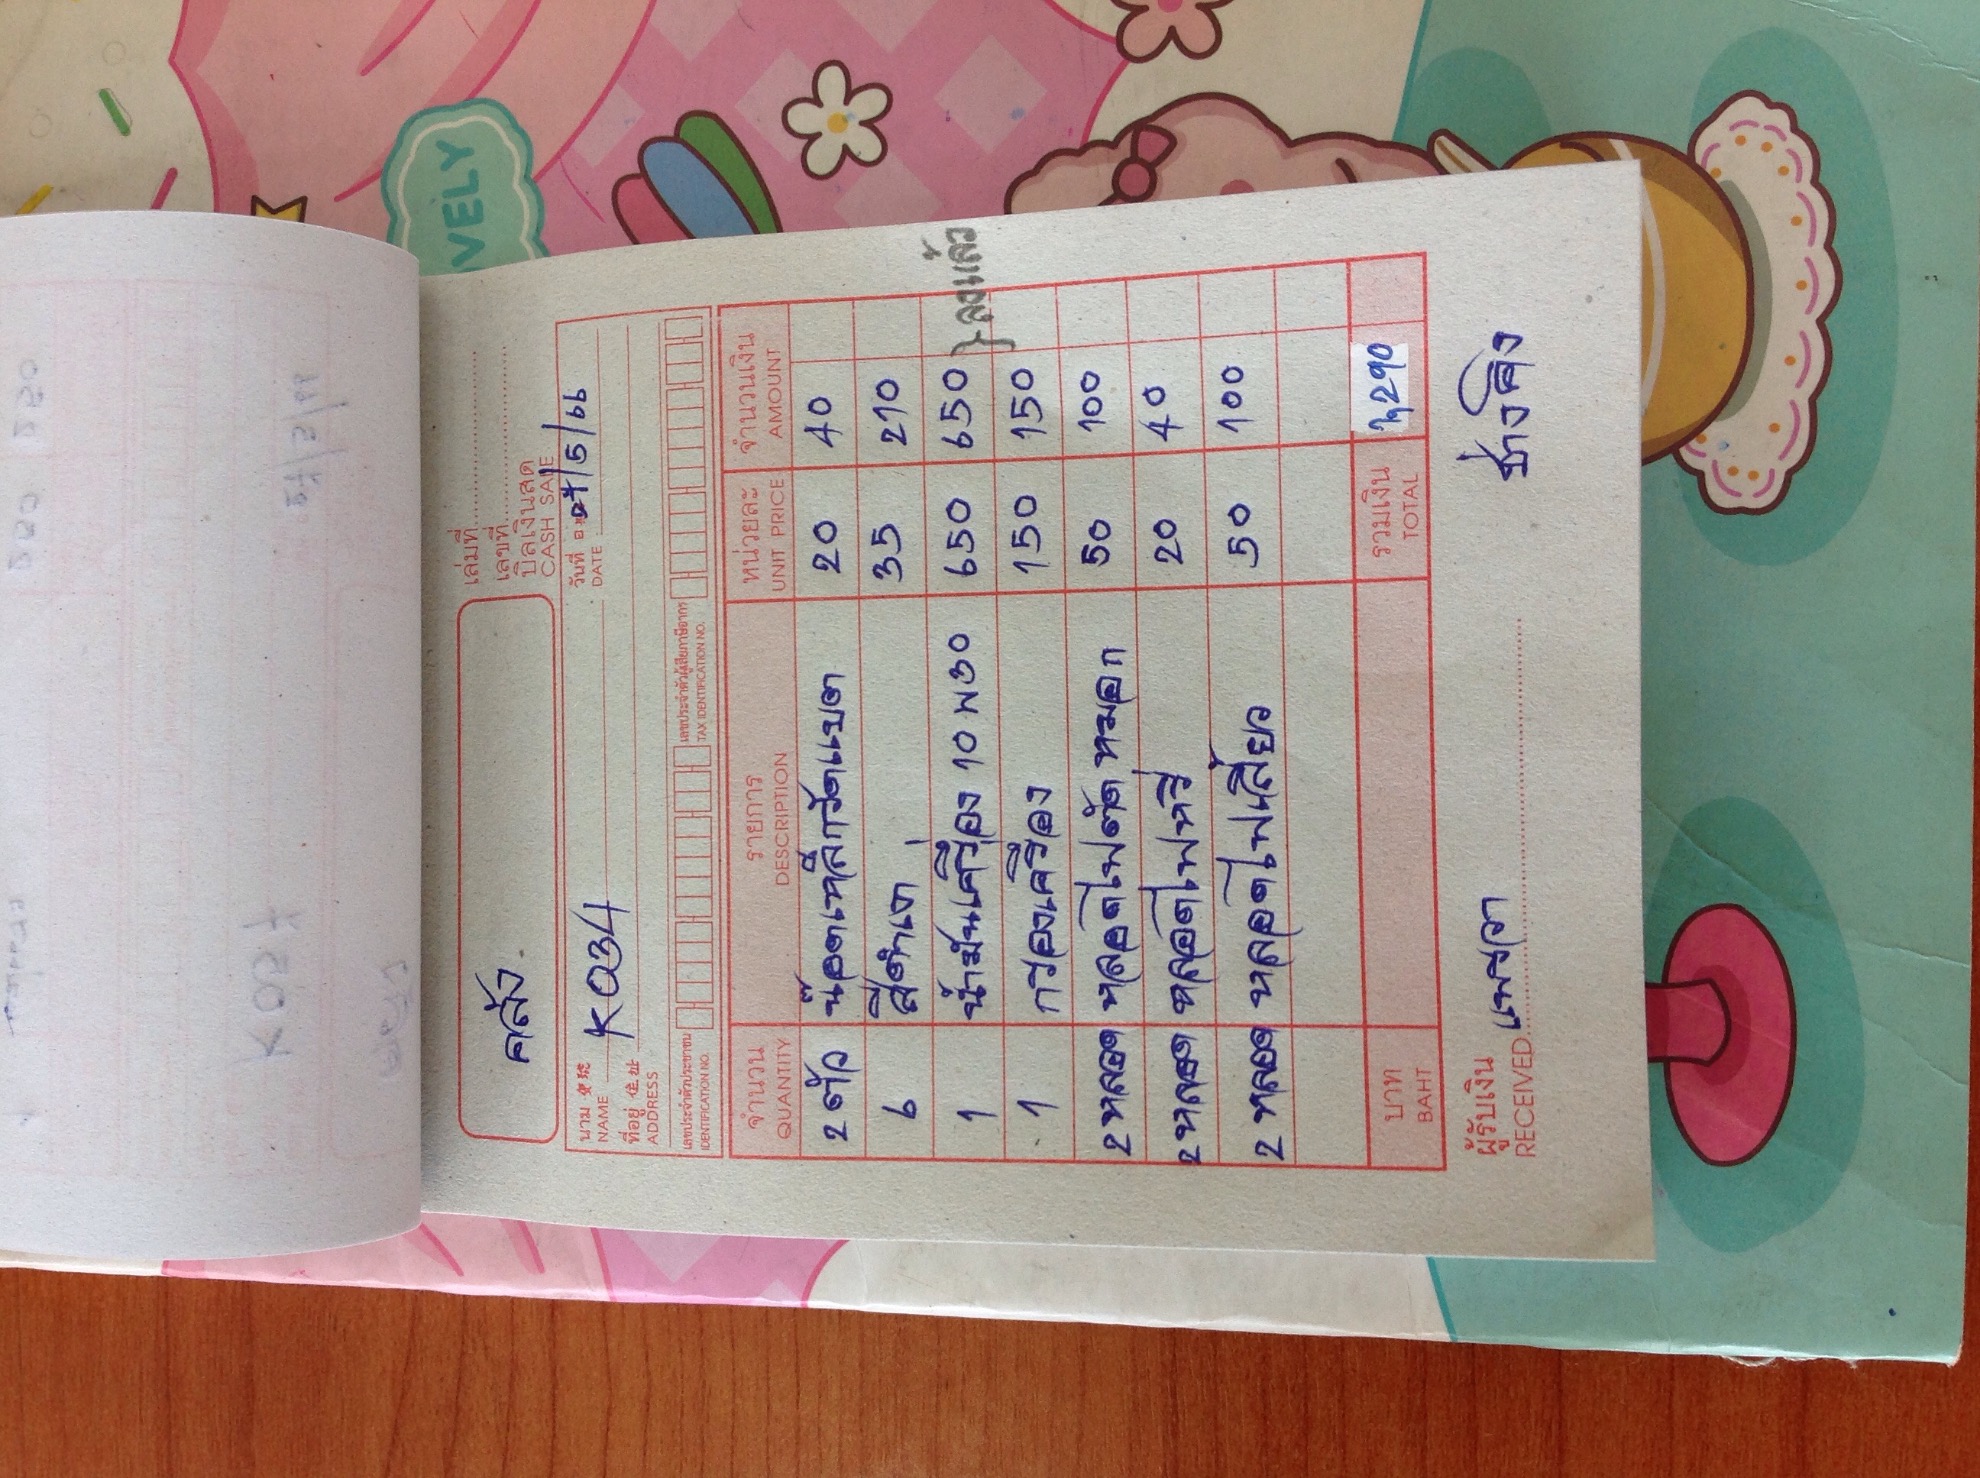 VELY
เล่มที่
เลขที่
บิลเงินสด
CASH SALE
คลัง
นาม K034
NAME
วันที่ /5/66
DATE
ที่อยู่ 住址
ADDRESS
เลขประจำตัวประชาชน
IDENTIFICATION NO.
เลขประจำตัวผู้เสียภาษีอากร
TAX IDENTIFICATION NO.
จำนวน รายการ หน่วยละ จำนวนเงิน
QUANTITY DESCRIPTION UNIT PRICE AMOUNT
2 ตัว น๊อตเหล็กวัดแบต 20 40
6 สีดำเงา 35 210
1 น้ำมันเครื่อง 10 W30 650 650 } ลงแล้ว
1 กรองเครื่อง 150 150
2 หลอด หลอดไฟตัดหมอก 50 100
2 หลอด หลอดไฟหรี่ 20 40
2 หลอด หลอดไฟเลี้ยว 50 100
บาท รวมเงิน 1,290
BAHT TOTAL
ผู้รับเงิน แพรวา ช่างคิง
RECEIVED